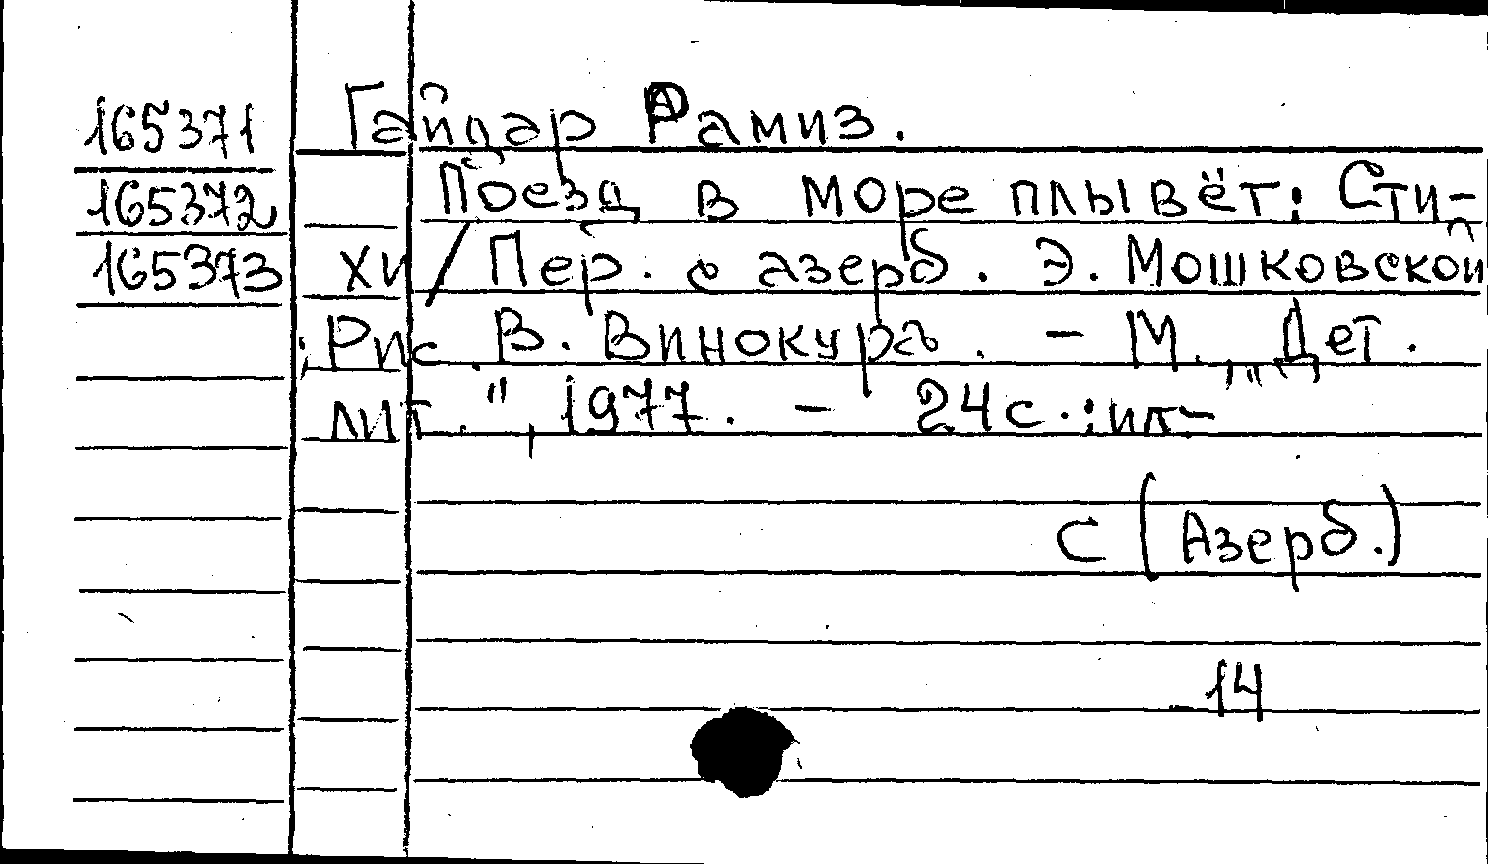 165371 Гайдар Рамиз.
165372 Поезд в море плывёт: Сти-
165373 хи / Пер. с азерб. Э. Мошковской
; Рис. В. Винокура. - М., "Дет.
лит.", 1977. - 24с.: ил-
С (Азерб.)
14